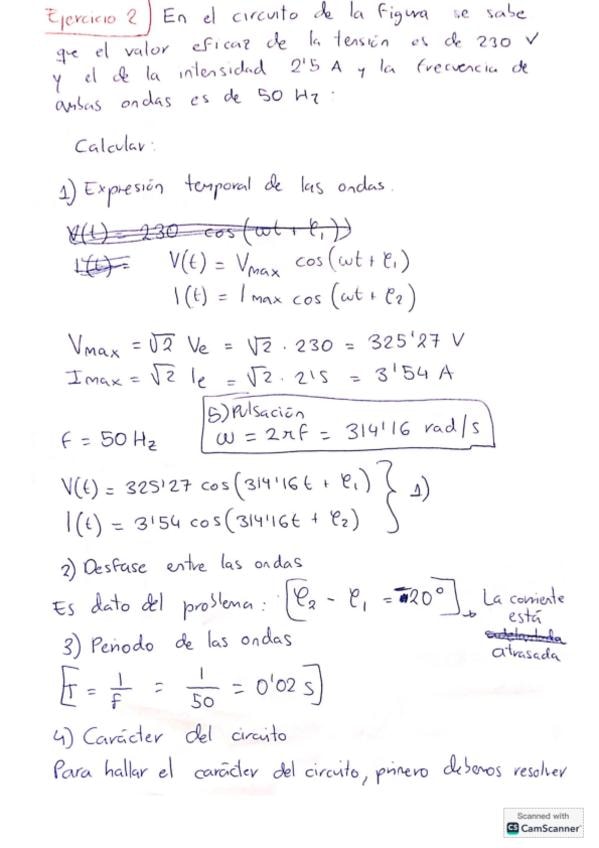 Ejercicio 2 En el circuito de la figura se sabe
que el valor eficaz de la tensión es de 230 V
y el de la intensidad 2'5 A y la frecuencia de
ambas ondas es de 50 Hz:
Calcular:
1) Expresión temporal de las ondas.
V(t) = 230 cos(ωt + φ₁)
I(t) = V(t) = Vmax cos(ωt + φ₁)
I(t) = Imax cos(ωt + φ₂)
Vmax = √2 Ve = √2 · 230 = 325'27 V
Imax = √2 Ie = √2 · 2'5 = 3'54 A
5) Pulsación
f = 50 Hz ω = 2πf = 314'16 rad/s
V(t) = 325'27 cos(314'16t + φ₁) } 1)
I(t) = 3'54 cos(314'16t + φ₂)
2) Desfase entre las ondas
Es dato del problema: [φ₂ - φ₁ = -20°] → La corriente
está
adelantada
atrasada
3) Periodo de las ondas
[T = 1/f = 1/50 = 0'02 s]
4) Carácter del circuito
Para hallar el carácter del circuito, primero debemos resolver
Scanned with
CS CamScanner